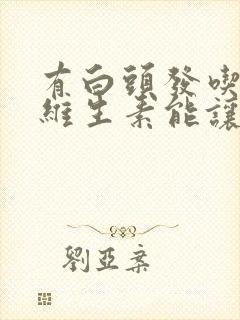 有白頭發喫
維生素能讓
劉亞棻